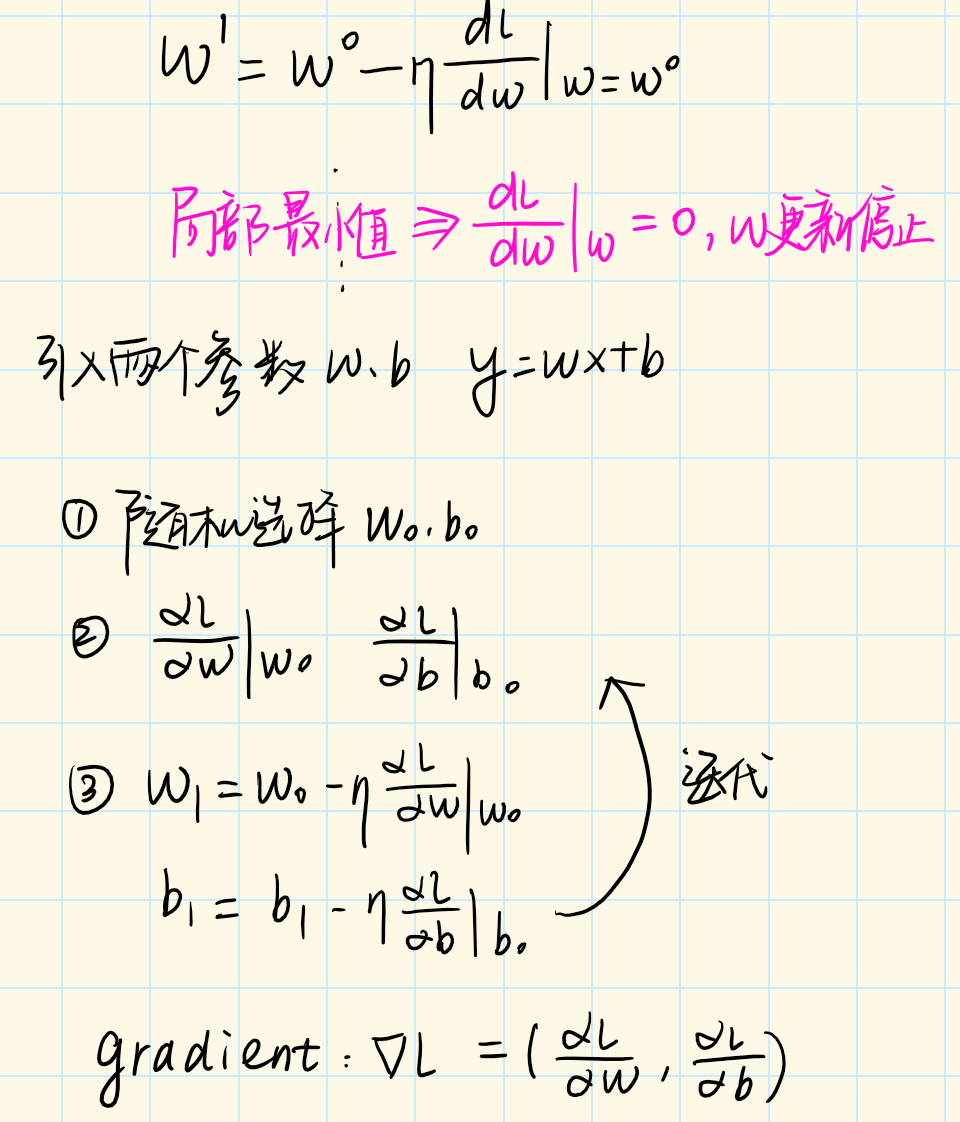 w¹ = w⁰ − η dL/dw |w=w⁰
局部最小值 ⇒ dL/dw |w = 0, w更新停止
引入两个参数 w、b y=wx+b
① 随机选择 w₀.b₀
② ∂L/∂w |w₀ ∂L/∂b |b₀
③ w₁ = w₀ - η ∂L/∂w |w₀
迭代
b₁ = b₁ - η ∂L/∂b |b₀
gradient : ∇L = (∂L/∂w, ∂L/∂b)